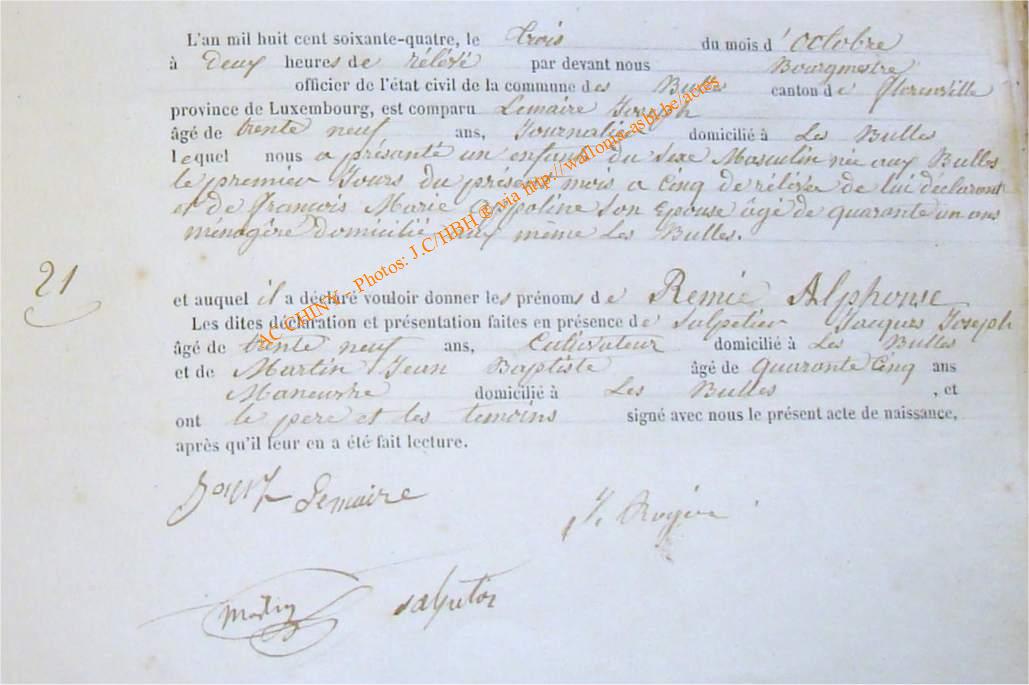 L'an mil huit cent soixante-quatre, le trois du mois d'Octobre
à Deux heures de rélévé par devant nous Bourgmestre
officier de l'état civil de la commune des Bulles canton de Florenville
province de Luxembourg, est comparu Lemaire Joseph
âgé de trente neuf ans, Journalier domicilié à Les Bulles
lequel nous a présanté un enfant du Sexe Masculin née aux Bulles
le premier Jours du présent mois a Cinq de rélévée de lui déclarant
et de François Marie Appoline Son Epouse âgé de quarante un ans
ménagère Domicilié aux même Les Bulles.
21
et auquel il a déclaré vouloir donner les prénoms de Remie Alphonse
Les dites déclaration et présentation faites en présence de Salpetier Jacques Joseph
âgé de trente neuf ans, Cultivateur domicilié à Les Bulles
et de Martin Jean Baptiste âgé de quarante Cinq ans
Maneuvre domicilié à Les Bulles, et
ont le pere et les temoins signé avec nous le présent acte de naissance,
après qu'il leur en a été fait lecture.
Lemaire
Martin
AC CHINY - Photos: J.C/HBH ® via http://wallonia-asbl.be/actes